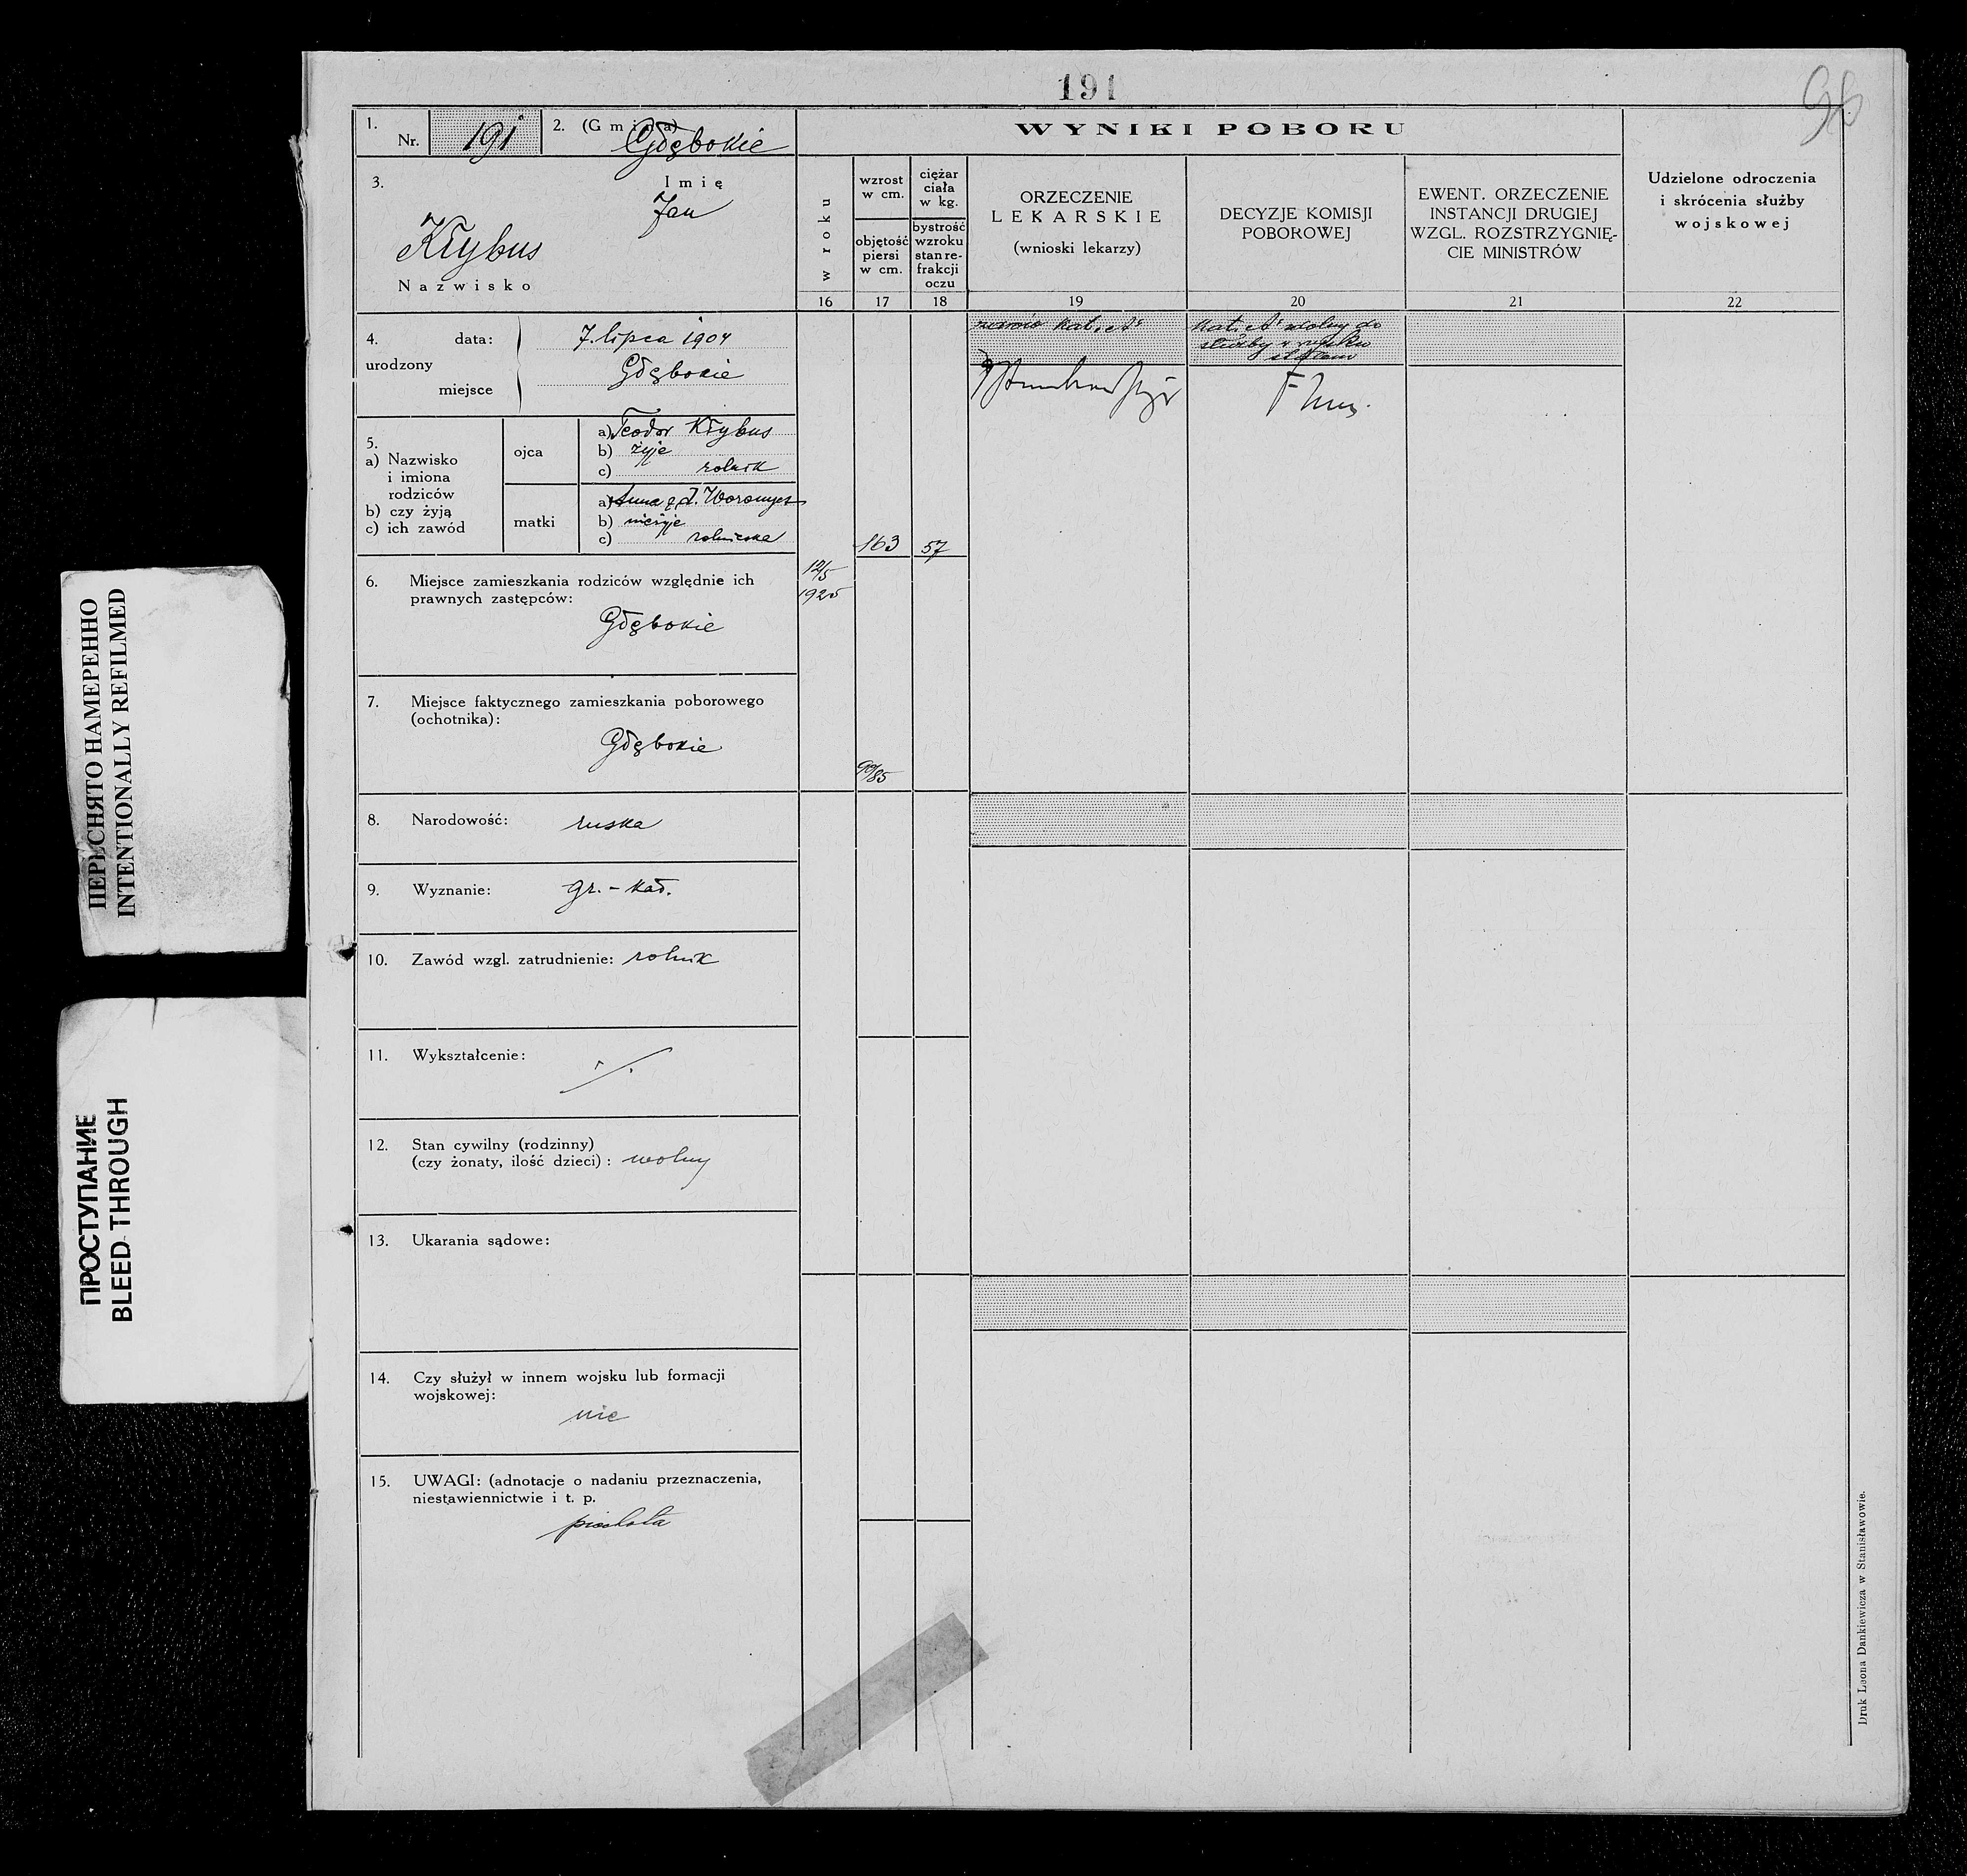 191
98
1.
Nr. 191
2. (Gmina) Głębokie
3.
Imię
Jan
Kłybus
Nazwisko
WYNIKI POBORU
w roku
wzrost
w cm.
objętość
piersi
w cm.
ciężar
ciała
w kg.
bystrość
wzroku
stan re-
frakcji
oczu
ORZECZENIE
LEKARSKIE
(wnioski lekarzy)
DECYZJE KOMISJI
POBOROWEJ
EWENT. ORZECZENIE
INSTANCJI DRUGIEJ
WZGL. ROZSTRZYGNIĘ-
CIE MINISTRÓW
Udzielone odroczenia
i skrócenia służby
wojskowej
16 17 18 19 20 21 22
4. data: 7. lipca 1904
urodzony
miejsce Głębokie
kat. „A"
kat „A" zdolny do
służby w wojsku
stałem
5.
a) Nazwisko
i imiona
rodziców
b) czy żyją
c) ich zawód
ojca
a) Teodor Kłybus
b) żyje
c) rolnik
matki
a) Anna z d.
b) nieżyje
c) rolniczka
163 57
12/5
1925
6. Miejsce zamieszkania rodziców względnie ich
prawnych zastępców:
Głębokie
7. Miejsce faktycznego zamieszkania poborowego
(ochotnika):
Głębokie
90/85
8. Narodowość: ruska
9. Wyznanie: gr. - kat.
10. Zawód wzgl. zatrudnienie: rolnik
11. Wykształcenie:
./.
12. Stan cywilny (rodzinny)
(czy żonaty, ilość dzieci): wolny
13. Ukarania sądowe:
14. Czy służył w innem wojsku lub formacji
wojskowej:
nie
15. UWAGI: (adnotacje o nadaniu przeznaczenia,
niestawiennictwie i t. p.
piechota
Druk Leona Dankiewicza w Stanisławowie.
ПЕРЕСНЯТО НАМЕРЕННО
INTENTIONALLY REFILMED
ПРОСТУПАНИЕ
BLEED-THROUGH